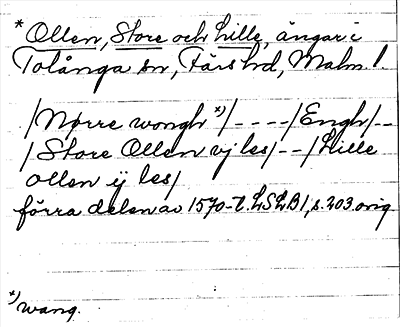 * Ollen, Store och Lille, ängar i
Tolånga sn, Färs hd, Malm. l.
/Nørre wongh *)/----/Engh/--
/Store Ollen vj les/--/Lille
Ollen ij les/
förra delen av 1570-t. LSLB 1, s. 203. orig.
*) wang.